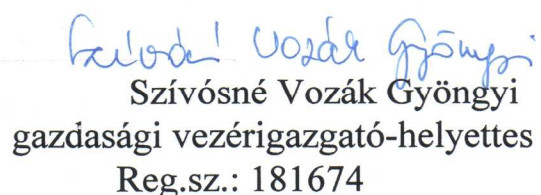 Szívósné Vozák Gyöngyi
Szívósné Vozák Gyöngyi
gazdasági vezérigazgató-helyettes
Reg.sz.: 181674